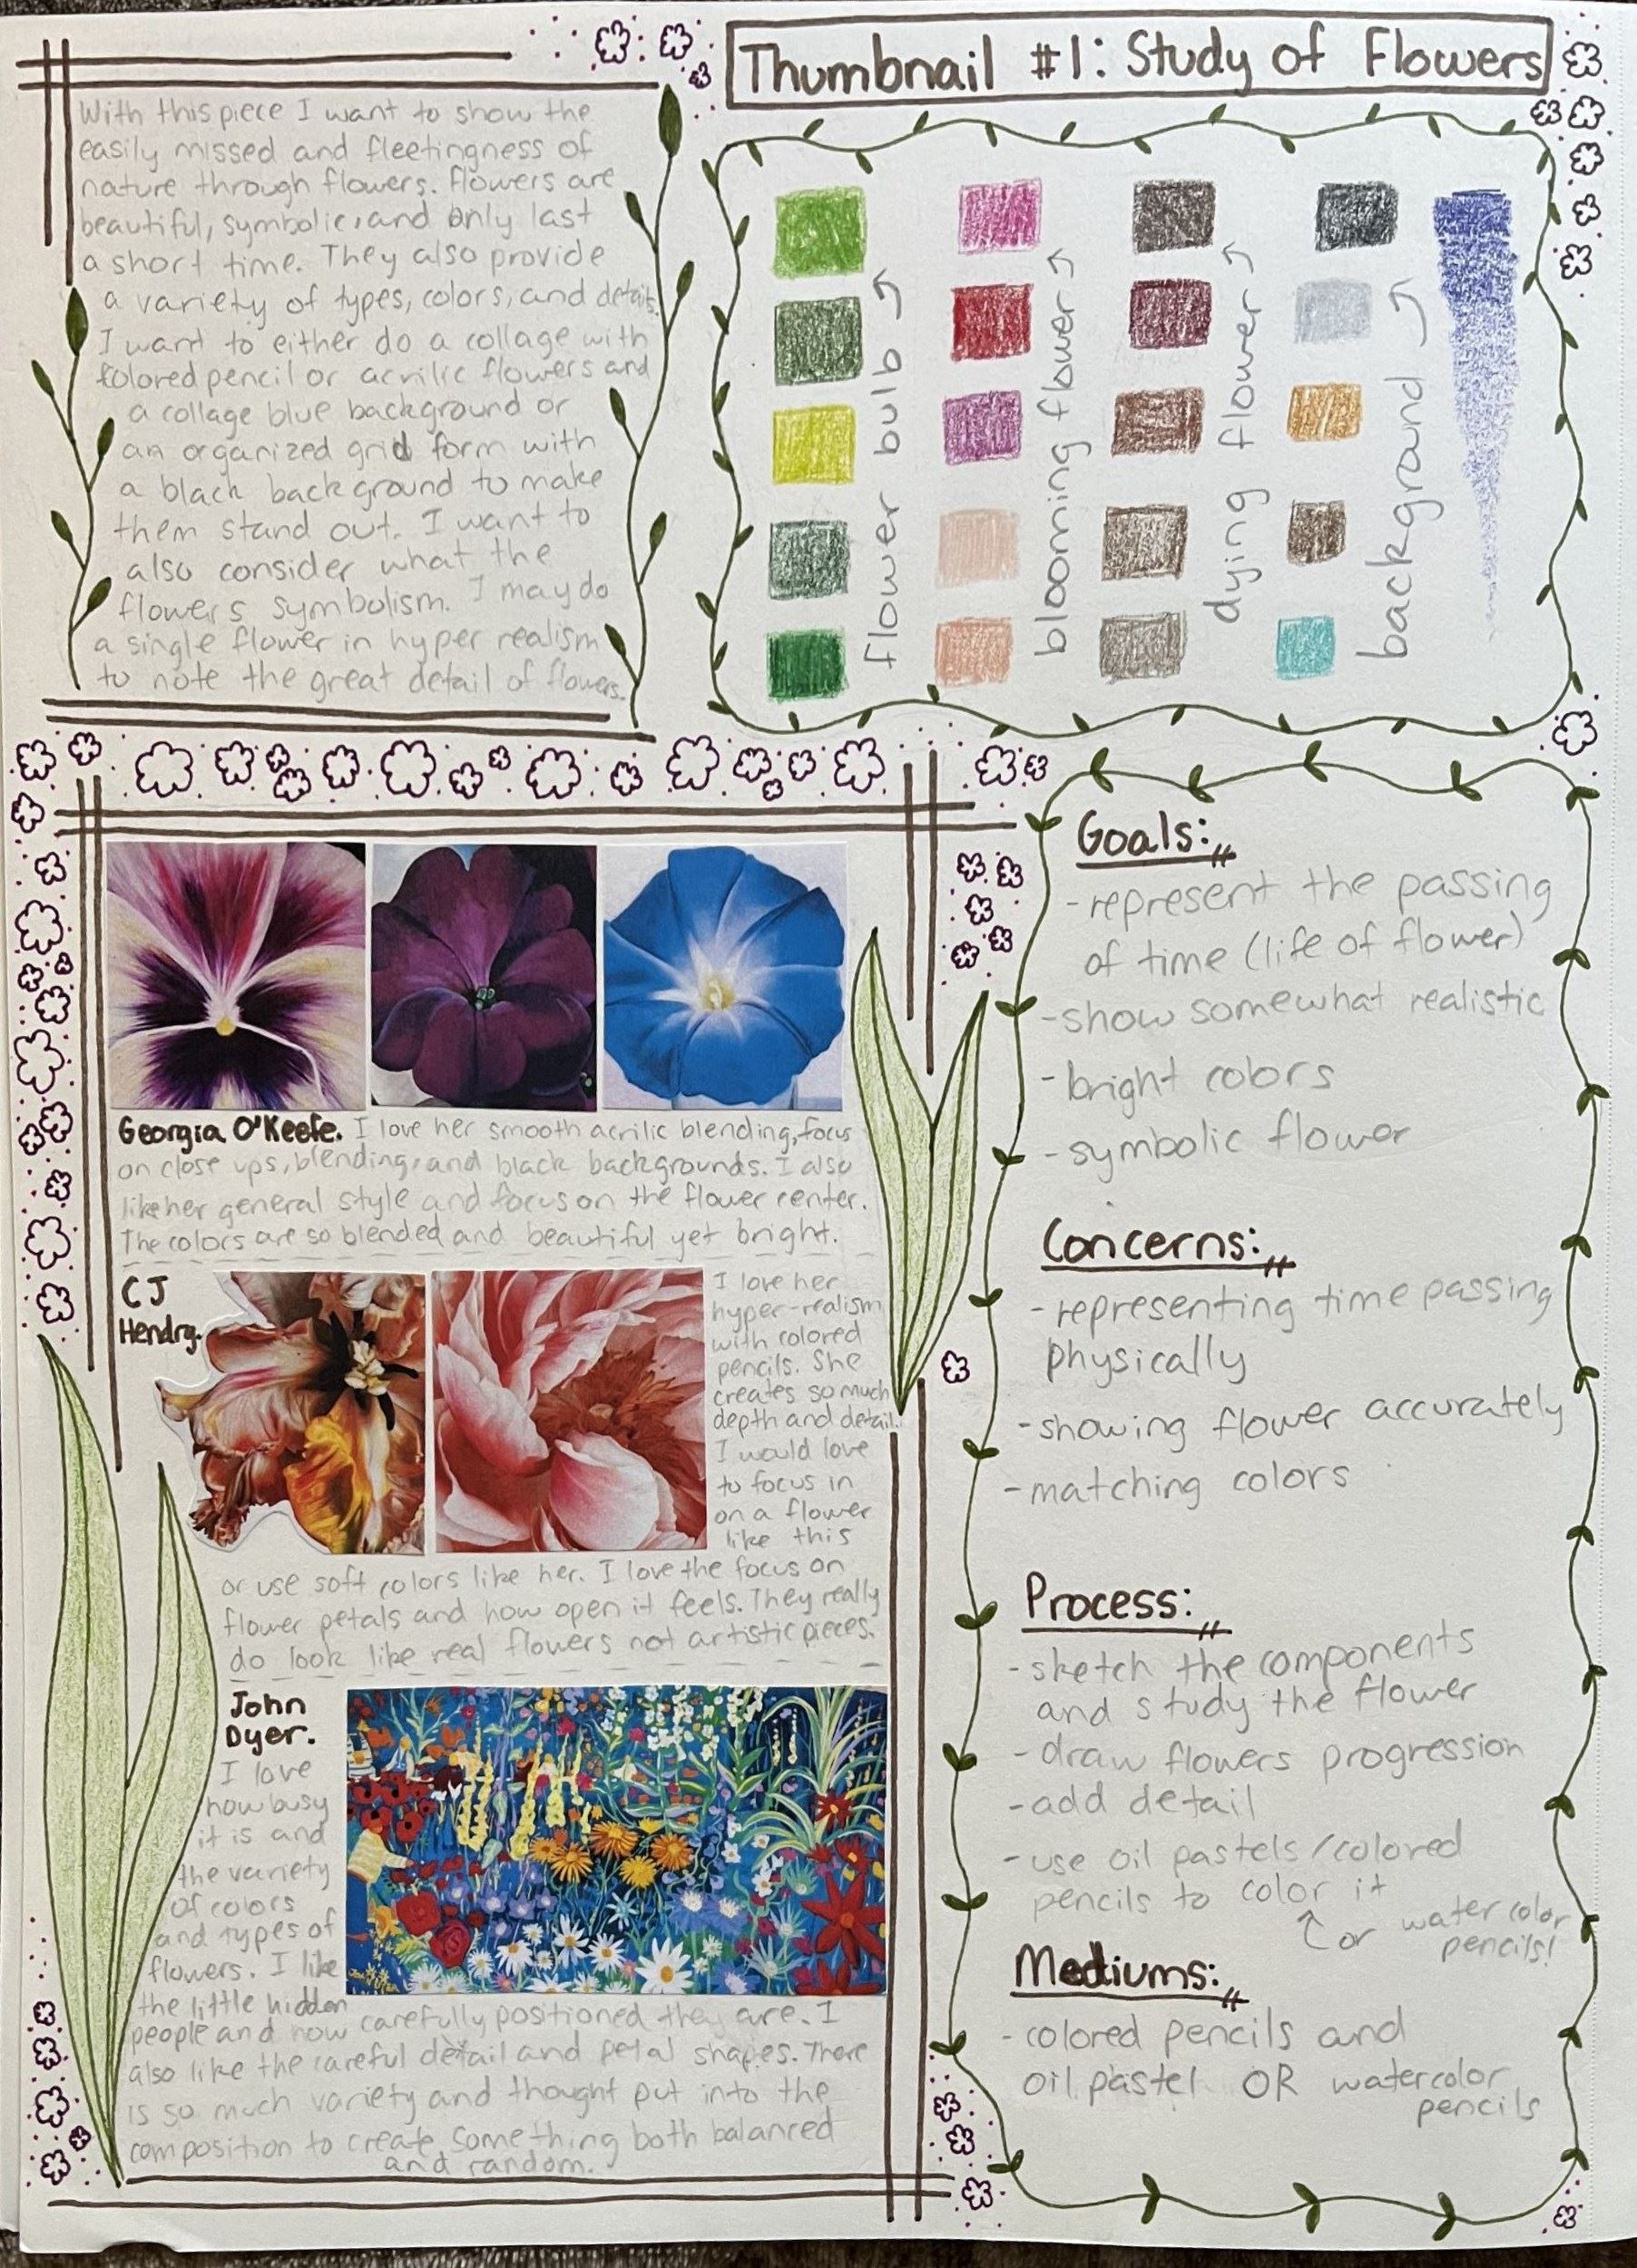 Thumbnail #1: Study of Flowers
With this piece I want to show the
easily missed and fleetingness of
nature through flowers. Flowers are
beautiful, symbolic, and only last
a short time. They also provide
a variety of types, colors, and details.
I want to either do a collage with
colored pencil or acrilic flowers and
a collage blue background or
an organized grid form with
a black background to make
them stand out. I want to
also consider what the
flowers symbolism. I may do
a single flower in hyper realism
to note the great detail of flowers.
flower bulb
blooming flower
dying flower
background
Georgia O'Keefe. I love her smooth acrilic blending, focus
on close ups, blending, and black backgrounds. I also
like her general style and focus on the flower center.
The colors are so blended and beautiful yet bright.
CJ
Hendry.
I love her
hyper-realism
with colored
pencils. She
creates so much
depth and detail.
I would love
to focus in
on a flower
like this
or use soft colors like her. I love the focus on
flower petals and how open it feels. They really
do look like real flowers not artistic pieces.
John
Dyer.
I love
how busy
it is and
the variety
of colors
and types of
flowers. I like
the little hidden
people and how carefully positioned they are. I
also like the careful detail and petal shapes. There
is so much variety and thought put into the
composition to create something both balanced
and random.
Goals:
-represent the passing
of time (life of flower)
-show somewhat realistic
-bright colors
-symbolic flower
Concerns:
-representing time passing
physically
-showing flower accurately
-matching colors
Process:
-sketch the components
and study the flower
-draw flowers progression
-add detail
-use oil pastels/colored
pencils to color it
or water color
pencils!
Mediums:
-colored pencils and
oil pastel OR watercolor
pencils